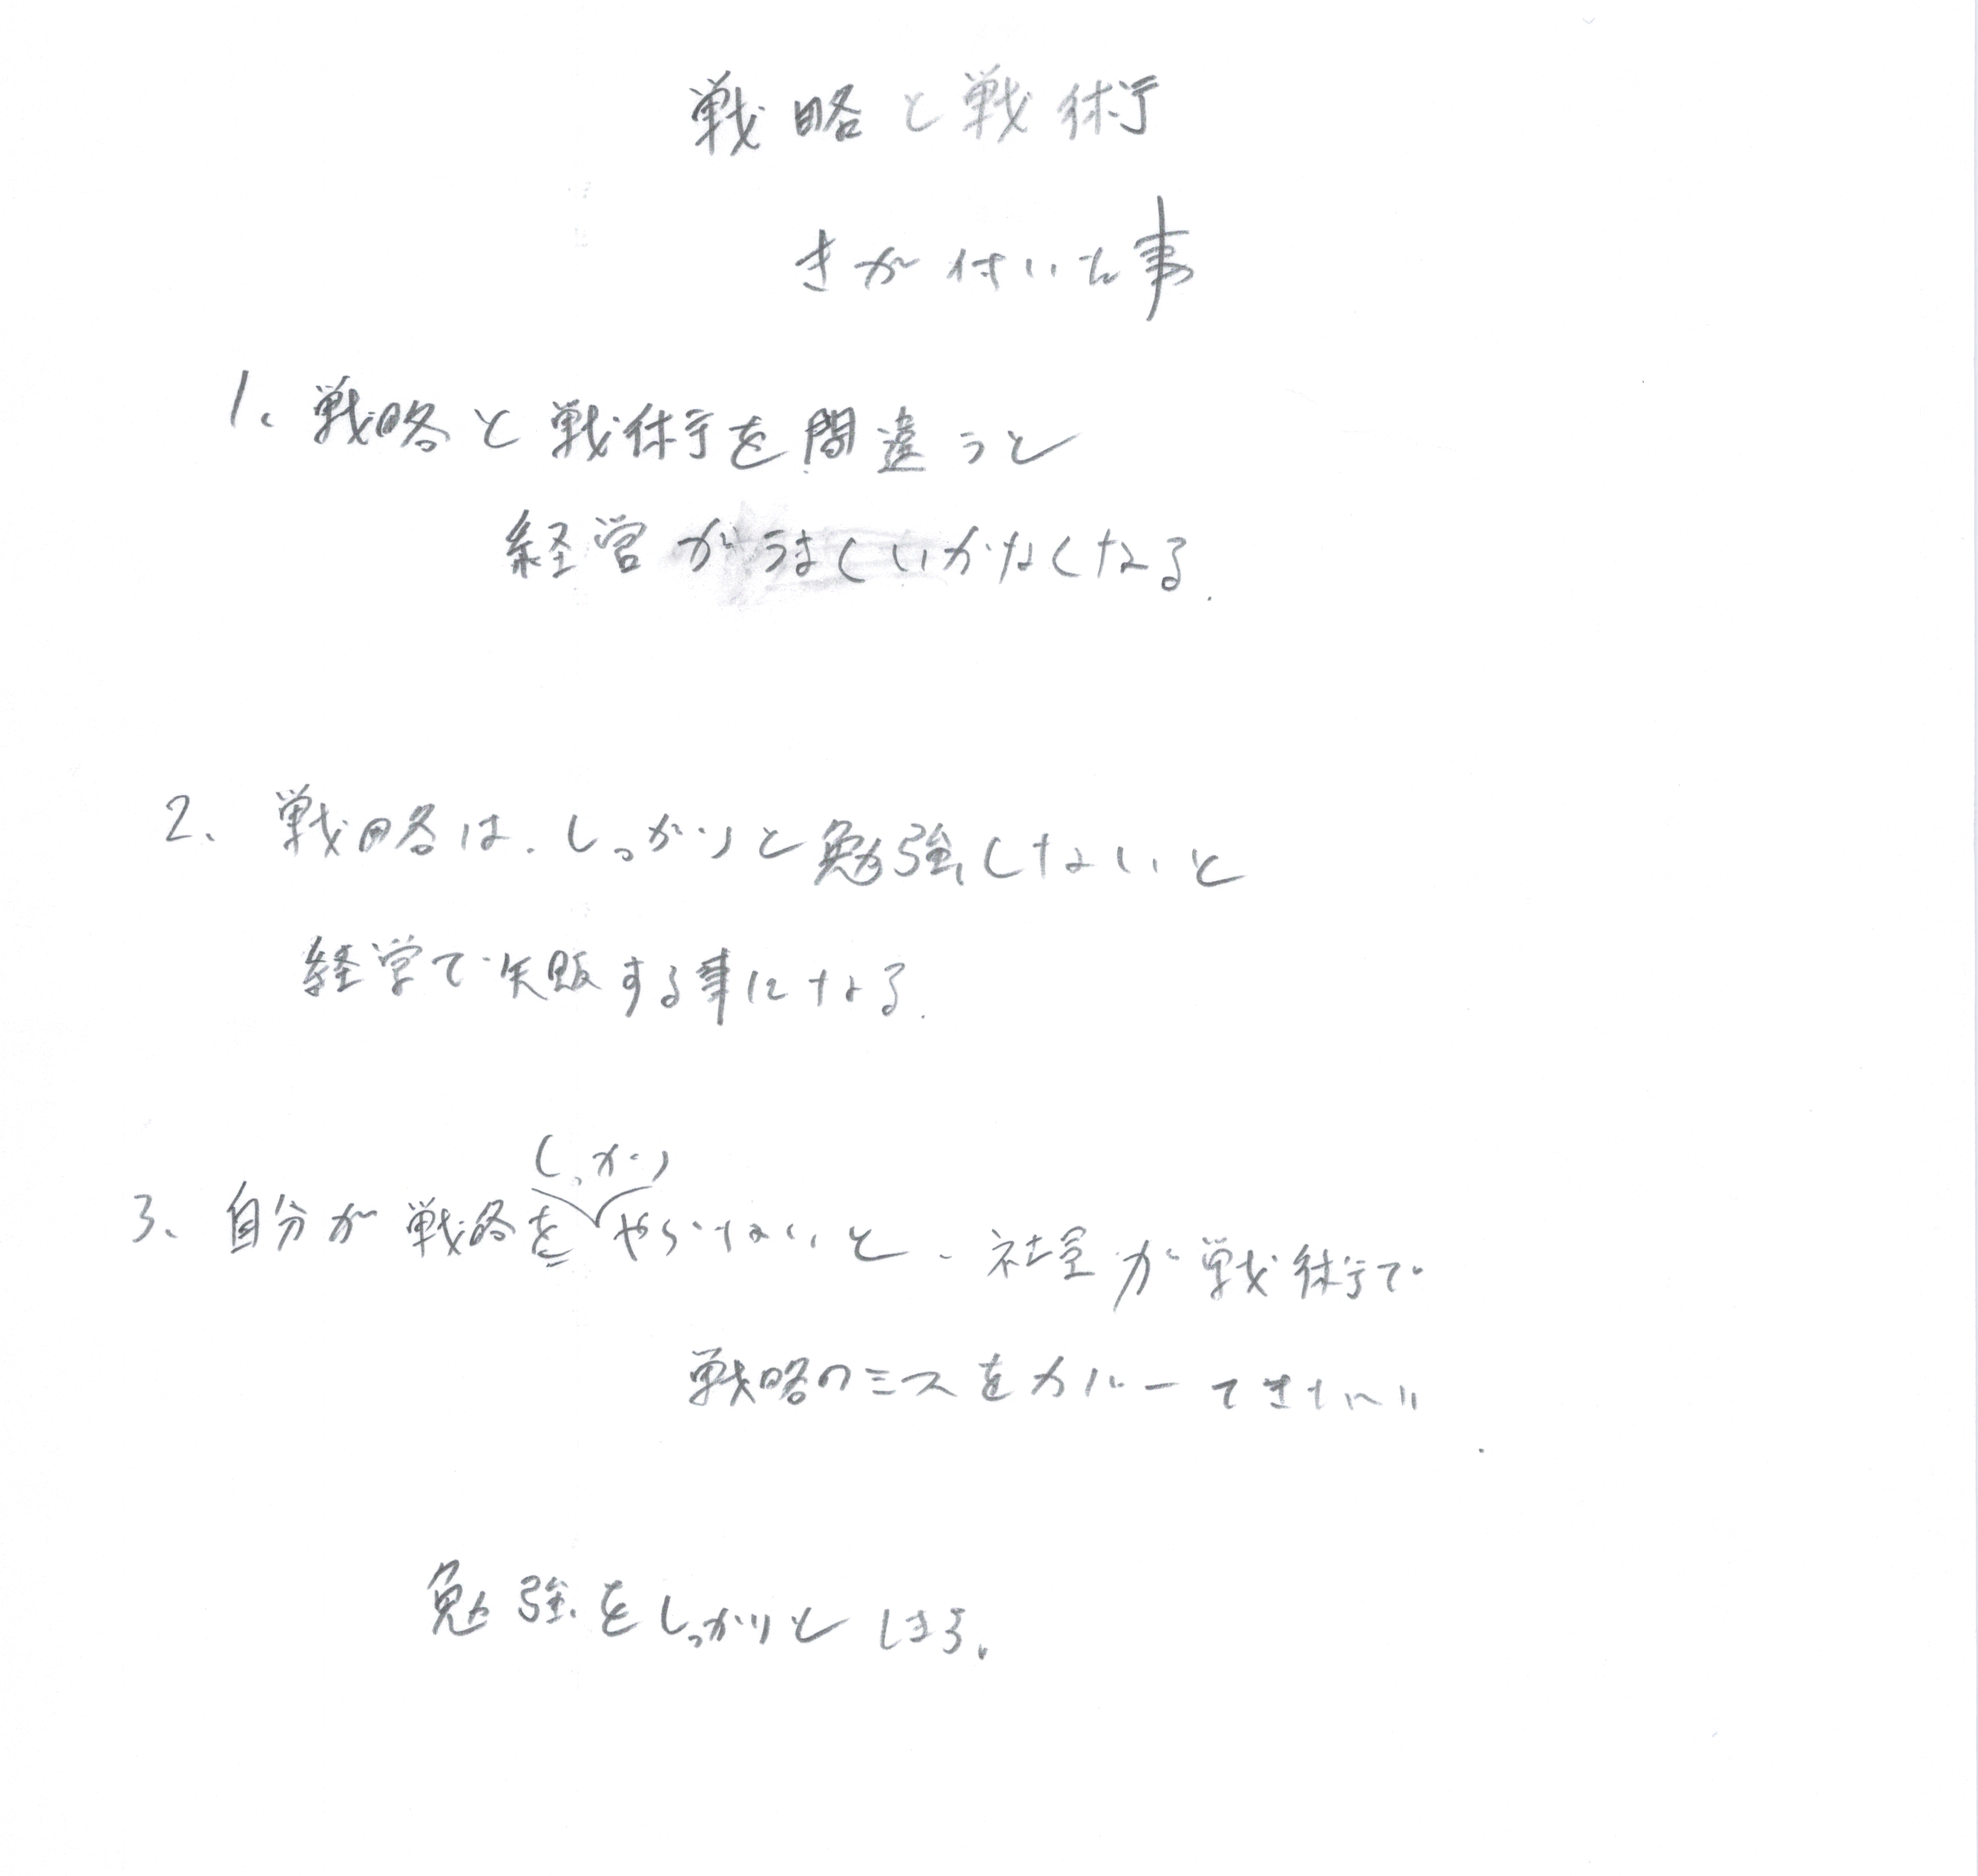 戦略と戦術
きが付いた事
1、戦略と戦術を間違うと
経営がうまくいかなくなる.
2、戦略は、しっかりと勉強しないと
経営で失敗する事になる.
3、自分が戦略をしっかりやらないと、社員が戦術で
戦略のミスをカバーできない
勉強をしっかりとしまう。